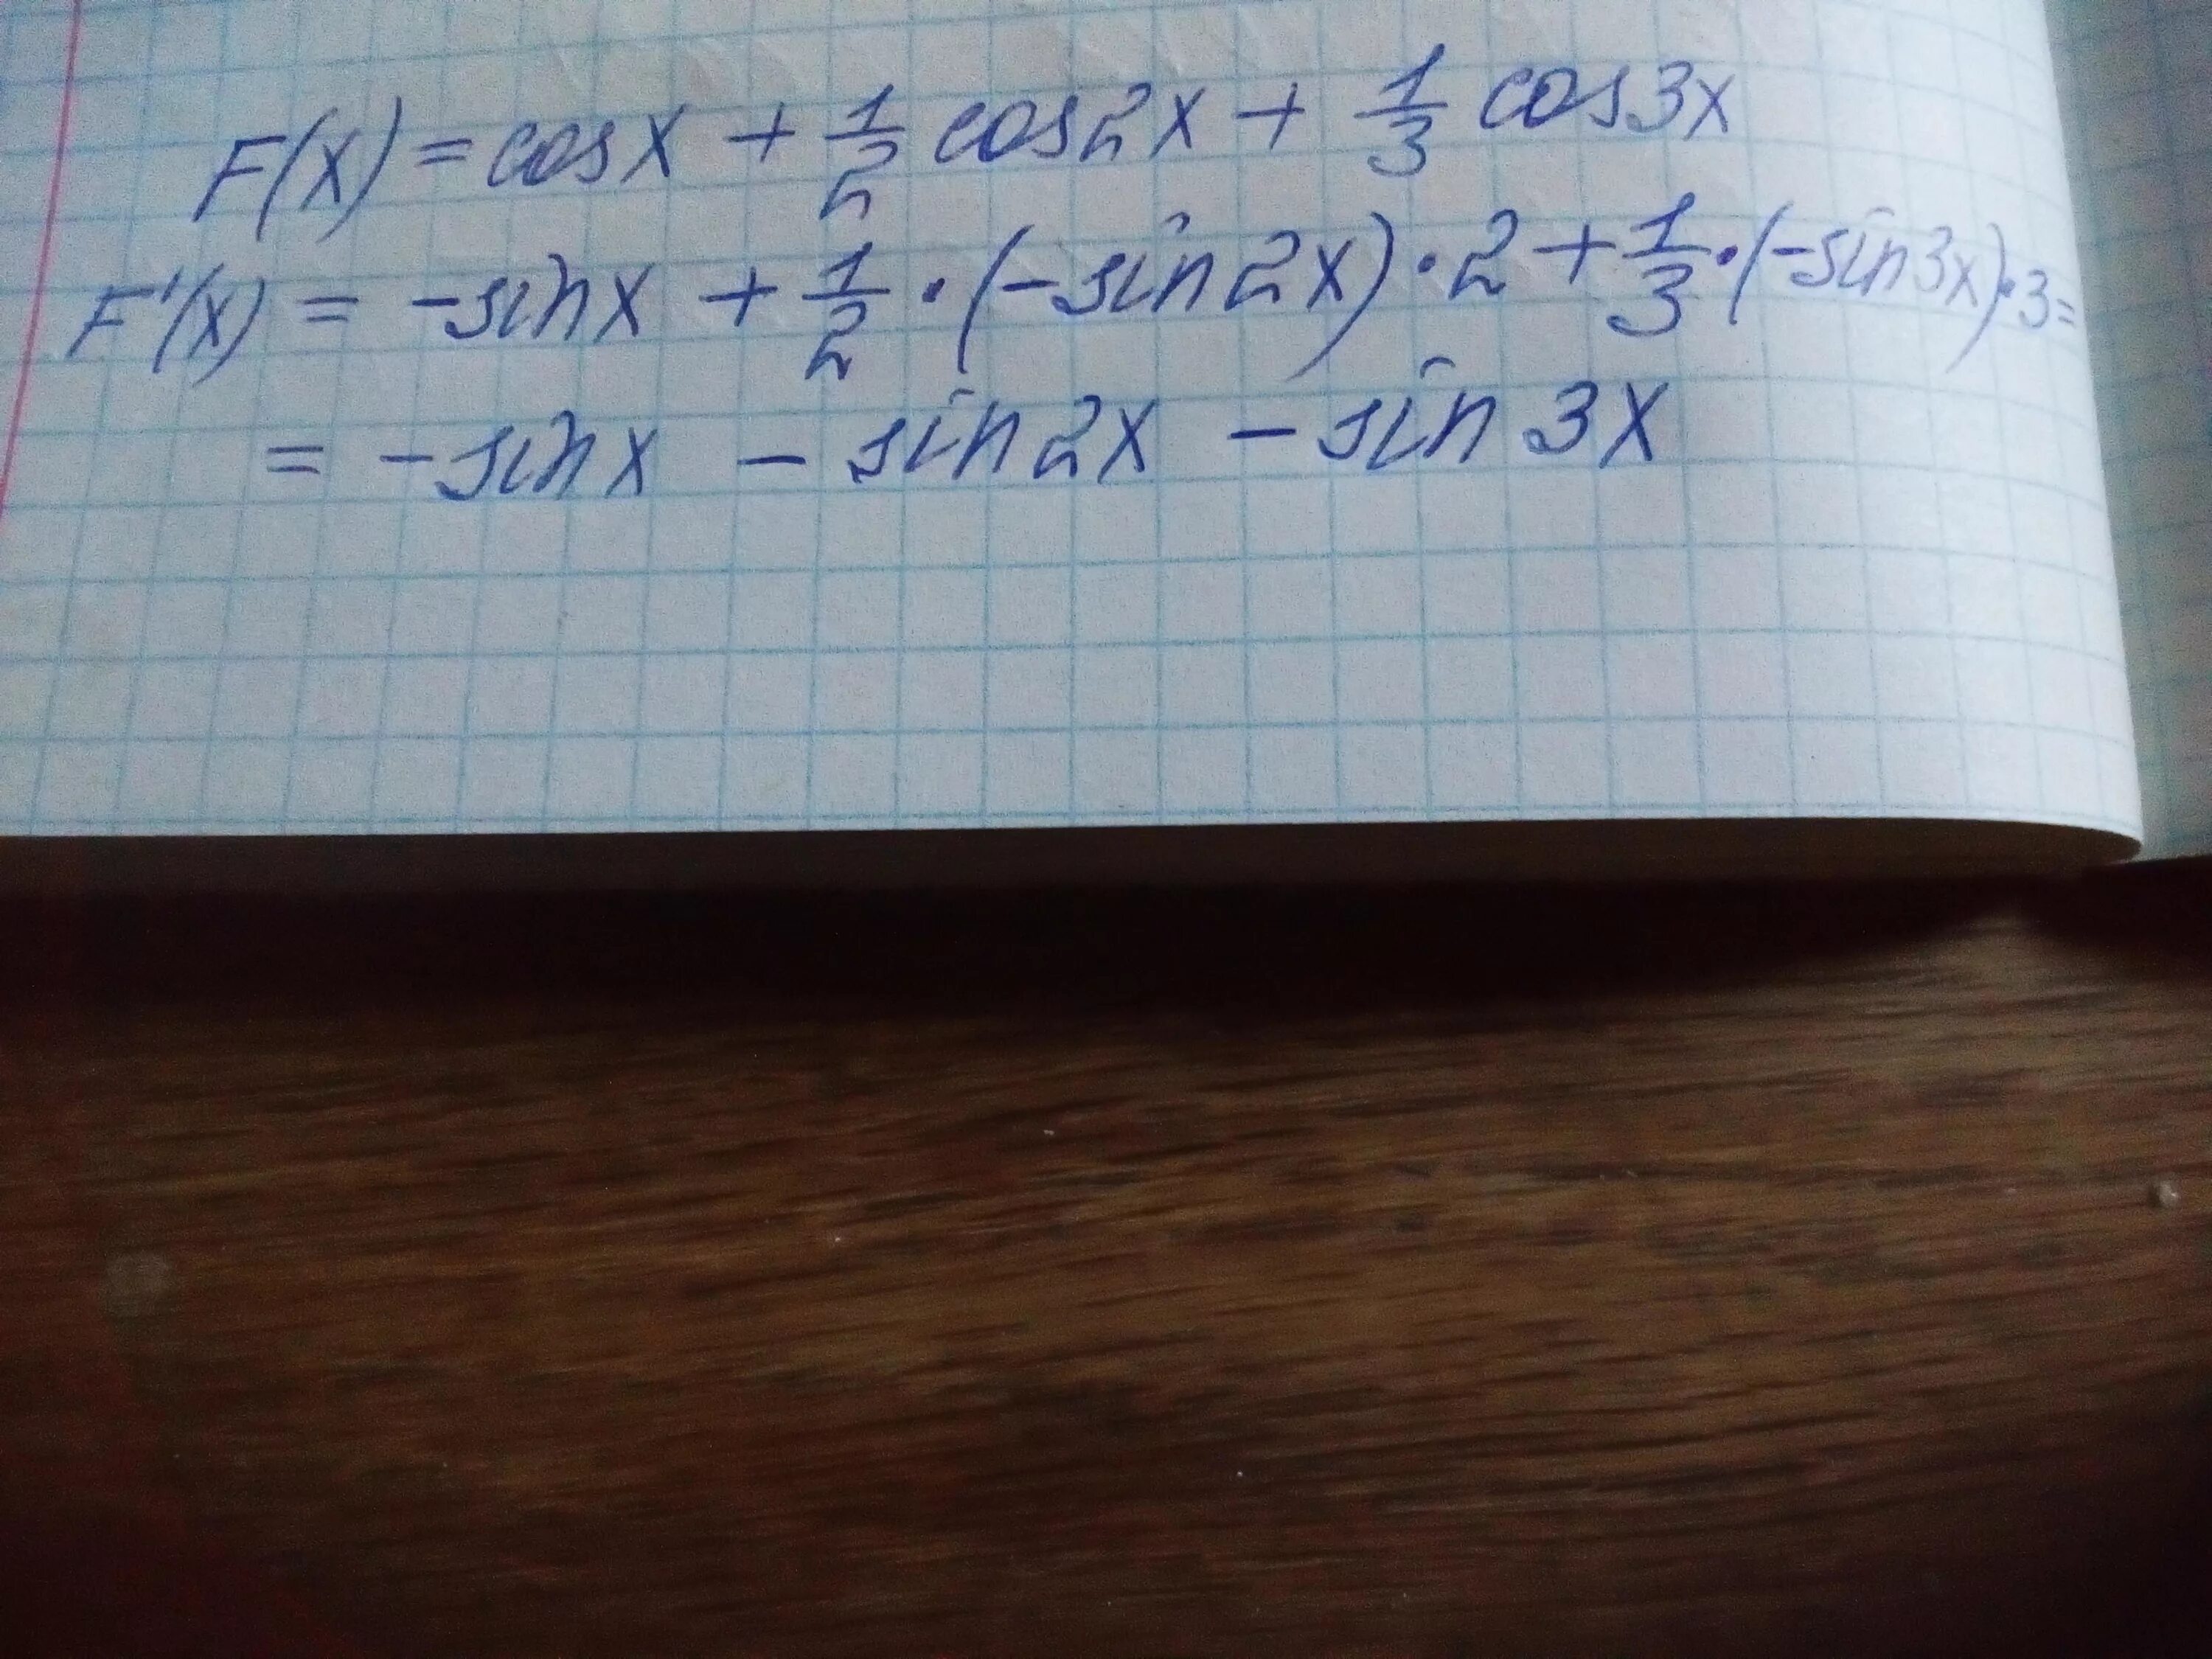 F(x) = cosx + 1/2 cos2x + 1/3 cos3x
F'(x) = -sinx + 1/2 · (-sin2x) · 2 + 1/3 · (-sin3x) · 3 =
= -sinx - sin2x - sin3x